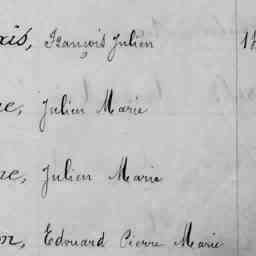 xis, François Julien 18
ne, Julien Marie
ne, Julien Marie
on, Edouard Pierre Marie